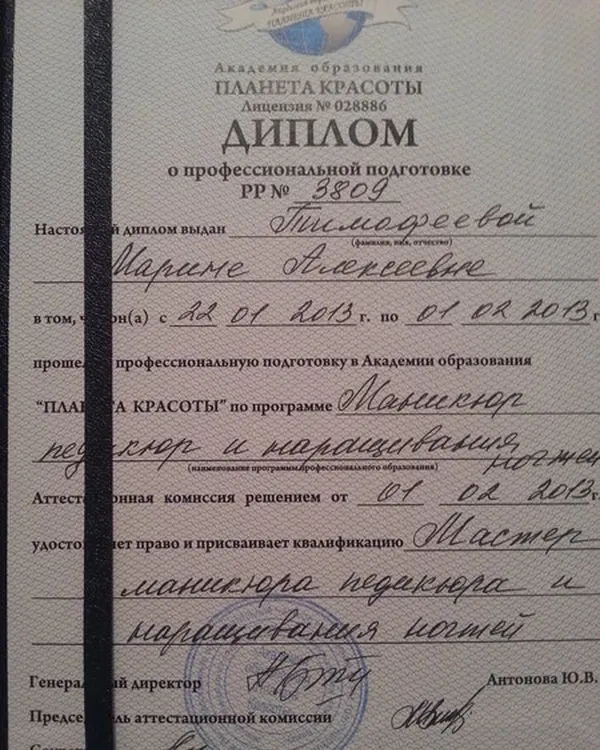 ПЛАНЕТА КРАСОТЫ
Академия образования
ПЛАНЕТА КРАСОТЫ
Лицензия № 028886
ДИПЛОМ
о профессиональной подготовке
РР № 3809
Настоя й диплом выдан Тимофеевой
(фамилия, имя, отчество)
Марине Алексеевне
в том, ч он(а) с 22 01 2013 г. по 01 02 2013 г
прошел профессиональную подготовку в Академии образования
"ПЛАН ТА КРАСОТЫ" по программе Маникюр
педикюр и наращивания ногтей
(наименование программы профессионального образования)
Аттест ионная комиссия решением от 01 02 2013 г.
удосто ет право и присваивает квалификацию Мастер
маникюра педикюра и
наращивания ногтей
Генера й директор Антонова Ю.В.
Предсе ль аттестационной комиссии